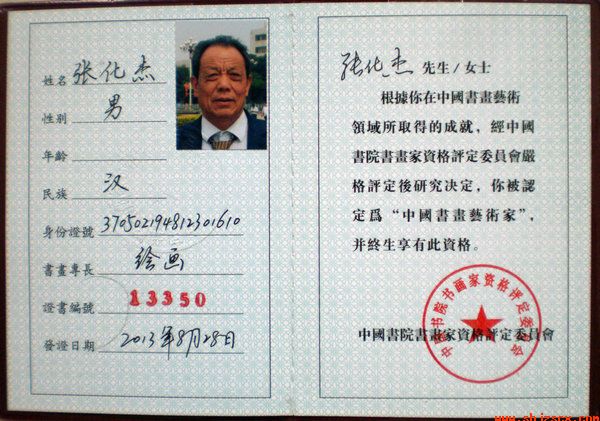 姓名 张化杰
性别 男
年龄
民族 汉
身份證號 370502194812301610
書畫專長 绘画
證書編號 13350
發證日期 2013年8月28日
张化杰 先生/女士
根據你在中國書畫藝術
領域所取得的成就，經中國
書院書畫家資格評定委員會嚴
格評定後研究決定，你被認
定爲“中國書畫藝術家”，
并終生享有此資格。
中國書院書畫家資格評定委員會
中国书院书画家资格评定委员会